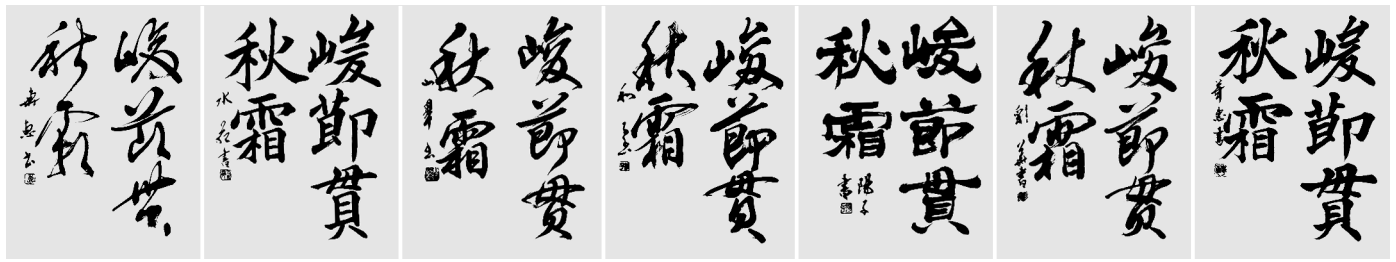 峻節貫
秋霜
峻節貫
秋霜
峻節貫
秋霜
峻節貫
秋霜
峻節貫
秋霜
陽子書
峻節貫
秋霜
峻節貫
秋霜